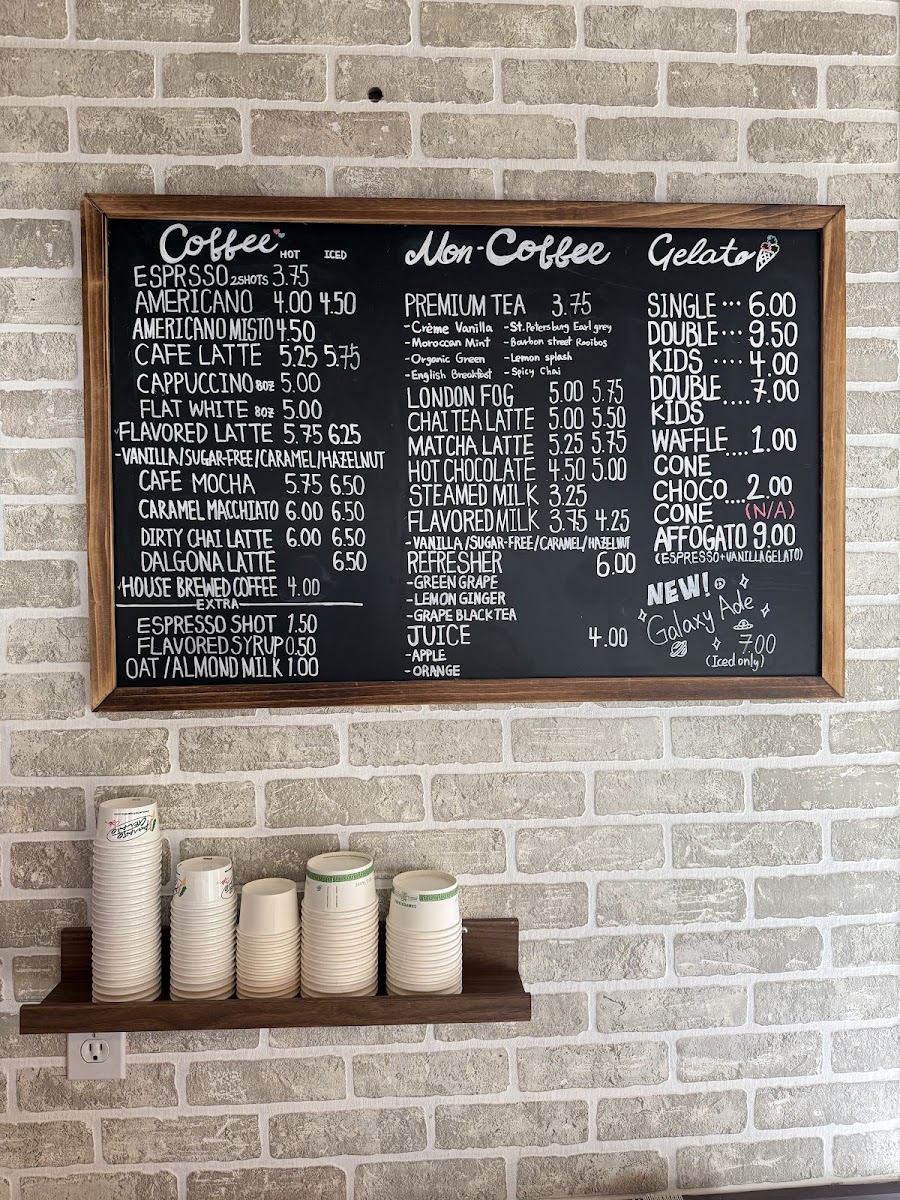 Coffee HOT ICED
ESPRSSO 2SHOTS 3.75
AMERICANO 4.00 4.50
AMERICANO MISTO 4.50
CAFE LATTE 5.25 5.75
CAPPUCCINO 8OZ 5.00
FLAT WHITE 8OZ 5.00
FLAVORED LATTE 5.75 6.25
-VANILLA/SUGAR-FREE/CARAMEL/HAZELNUT
CAFE MOCHA 5.75 6.50
CARAMEL MACCHIATO 6.00 6.50
DIRTY CHAI LATTE 6.00 6.50
DALGONA LATTE 6.50
HOUSE BREWED COFFEE 4.00
EXTRA
ESPRESSO SHOT 1.50
FLAVORED SYRUP 0.50
OAT/ALMOND MILK 1.00
Non-Coffee
PREMIUM TEA 3.75
-Crème Vanilla -St.Petersburg Earl grey
-Moroccan Mint -Bourbon street Rooibos
-Organic Green -Lemon splash
-English Breakfast -Spicy Chai
LONDON FOG 5.00 5.75
CHAI TEA LATTE 5.00 5.50
MATCHA LATTE 5.25 5.75
HOT CHOCOLATE 4.50 5.00
STEAMED MILK 3.25
FLAVORED MILK 3.75 4.25
-VANILLA/SUGAR-FREE/CARAMEL/HAZELNUT
REFRESHER 6.00
-GREEN GRAPE
-LEMON GINGER
-GRAPE BLACK TEA
JUICE 4.00
-APPLE
-ORANGE
Gelato
SINGLE ... 6.00
DOUBLE ... 9.50
KIDS .... 4.00
DOUBLE .... 7.00
KIDS
WAFFLE .... 1.00
CONE
CHOCO .... 2.00
CONE (N/A)
AFFOGATO 9.00
(ESPRESSO+VANILLA GELATO)
NEW!
Galaxy Ade
7.00
(Iced only)